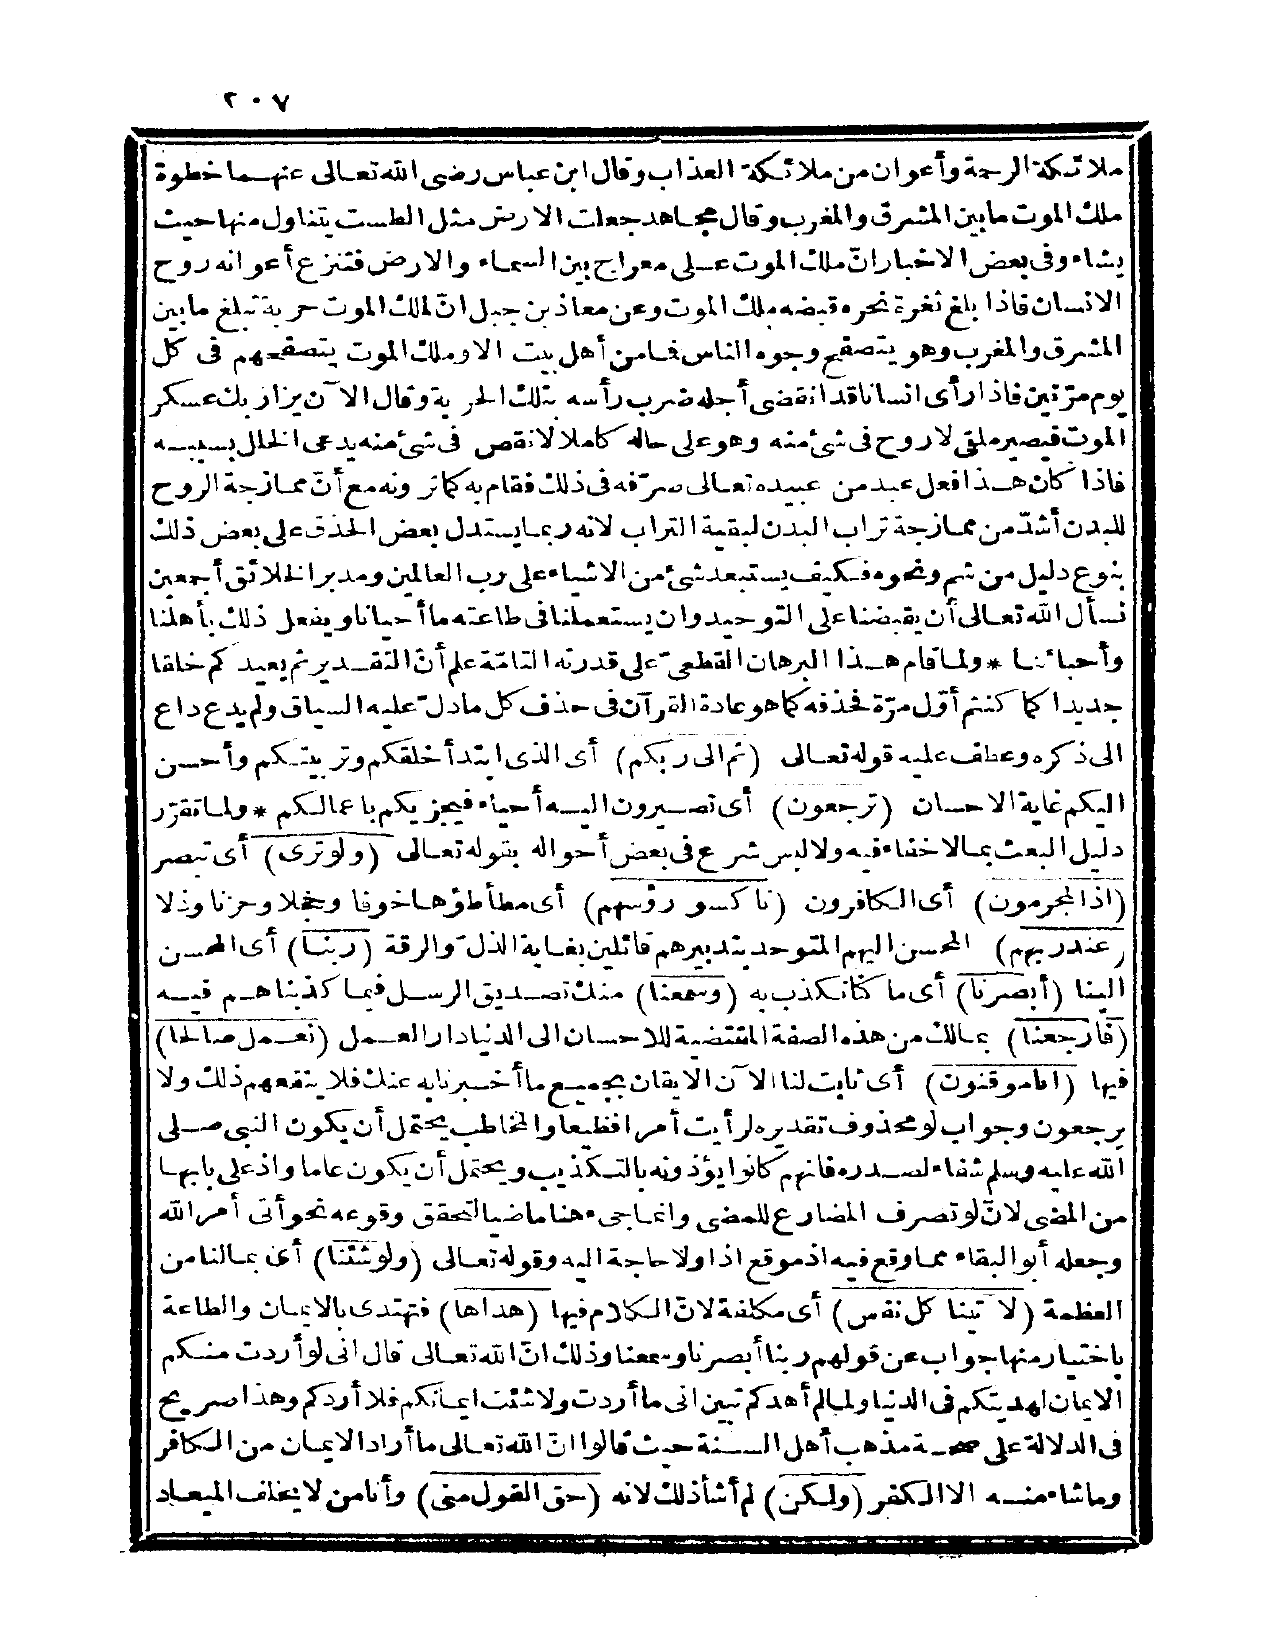 ٢٠٧
ملائكة الرحمة وأعوان من ملائكة العذاب وقال ابن عباس رضى الله تعالى عنهما خطوة
ملك الموت ما بين المشرق والمغرب وقال مجاهد جعلت الارض مثل الطست يتناول منها حيث
يشاء وفى بعض الاخبار انّ ملك الموت على معراج بين السماء والارض فتنزع أعوانه روح
الانسان فاذا بلغ ثغرة نحره قبضه ملك الموت وعن معاذ بن جبل انّ لملك الموت حربة تبلغ ما بين
المشرق والمغرب وهو يتصفح وجوه الناس فما من أهل بيت الا وملك الموت يتصفحهم فى كل
يوم مرّتين فاذا رأى انسانا قد انقضى أجله ضرب رأسه بتلك الحربة وقال الآن يزار بك عسكر
الموت فيصير ملقى لا روح فى شئ منه وهو على حاله كاملا لا نقص فى شئ منه يدعى الخال بسببه
فاذا كان هذا فعل عبد من عبيده تعالى صرّفه فى ذلك فقام به كما ترونه مع أنّ ممازجة الروح
للبدن أشدّ من ممازجة تراب البدن لبقية التراب لانه ربما يستدل بعض الحذق على بعض ذلك
بنوع دليل من شم ونحوه فكيف يستبعد شئ من الاشياء على رب العالمين ومدبر الخلائق أجمعين
نسأل الله تعالى أن يقبضنا على التوحيد وان يستعملنا فى طاعته ما أحيانا ويفعل ذلك بأهلنا
وأحبائنا * ولما قام هذا البرهان القطعىّ على قدرته التامّة علم أنّ التقدير ثم يعيدكم خلقا
جديدا كما كنتم أوّل مرّة فحذفه كما هو عادة القرآن فى حذف كل ما دلّ عليه السياق ولم يدع داع
الى ذكره وعطف عليه قوله تعالى (ثم الى ربكم) أى الذى ابتدأ خلقكم وتربيتكم وأحسن
اليكم غاية الاحسان (ترجعون) أى تصيرون اليه أحياء فيجزيكم باعمالكم * ولما تقرّر
دليل البعث بما لا خفاء فيه ولا لبس شرع فى بعض أحواله بقوله تعالى (ولو ترى) أى تبصر
(اذ المجرمون) أى الكافرون (ناكسو رؤسهم) أى مطأطؤها خوفا وخجلا وحزنا وذلا
(عند ربهم) المحسن اليهم المتوحد بتدبيرهم قائلين بغاية الذلّ والرقة (ربنا) أى المحسن
الينا (أبصرنا) أى ما كنا نكذب به (وسمعنا) منك تصديق الرسل فيما كذبناهم فيه
(فارجعنا) بمالك من هذه الصفة المقتضية للاحسان الى الدنيا دار العمل (نعمل صالحا)
فيها (انا موقنون) أى ثابت لنا الآن الايقان بجميع ما أخبرنا به عنك فلا ينفعهم ذلك ولا
يرجعون وجواب لو محذوف تقديره لرأيت أمرا فظيعا والمخاطب يحتمل أن يكون النبى صلى
الله عليه وسلم شفاء لصدره فانهم كانوا يؤذونه بالتكذيب ويحتمل أن يكون عاما واذ على بابها
من المضى لانّ لو تصرف المضارع للمضى وانما جىء هنا ماضيا لتحقق وقوعه نحو أتى أمر الله
وجعله أبو البقاء مما وقع فيه اذ موقع اذا ولا حاجة اليه وقوله تعالى (ولو شئنا) أى بمالنا من
العظمة (لآتينا كل نفس) أى مكلفة لانّ الكلام فيها (هداها) فتهتدى بالايمان والطاعة
باختيار منها جواب عن قولهم ربنا أبصرنا وسمعنا وذلك انّ الله تعالى قال انى لو أردت منكم
الايمان لهديتكم فى الدنيا ولما لم أهدكم تبين انى ما أردت ولا شئت ايمانكم فلا أردكم وهذا صريح
فى الدلالة على صحة مذهب أهل السنة حيث قالوا انّ الله تعالى ما أراد الايمان من الكافر
وما شاء منه الا الكفر (ولكن) لم أشأ ذلك لانه (حق القول منى) وأنا من لا يخلف الميعاد